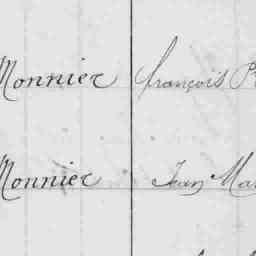 Monnier François
Monnier Jean